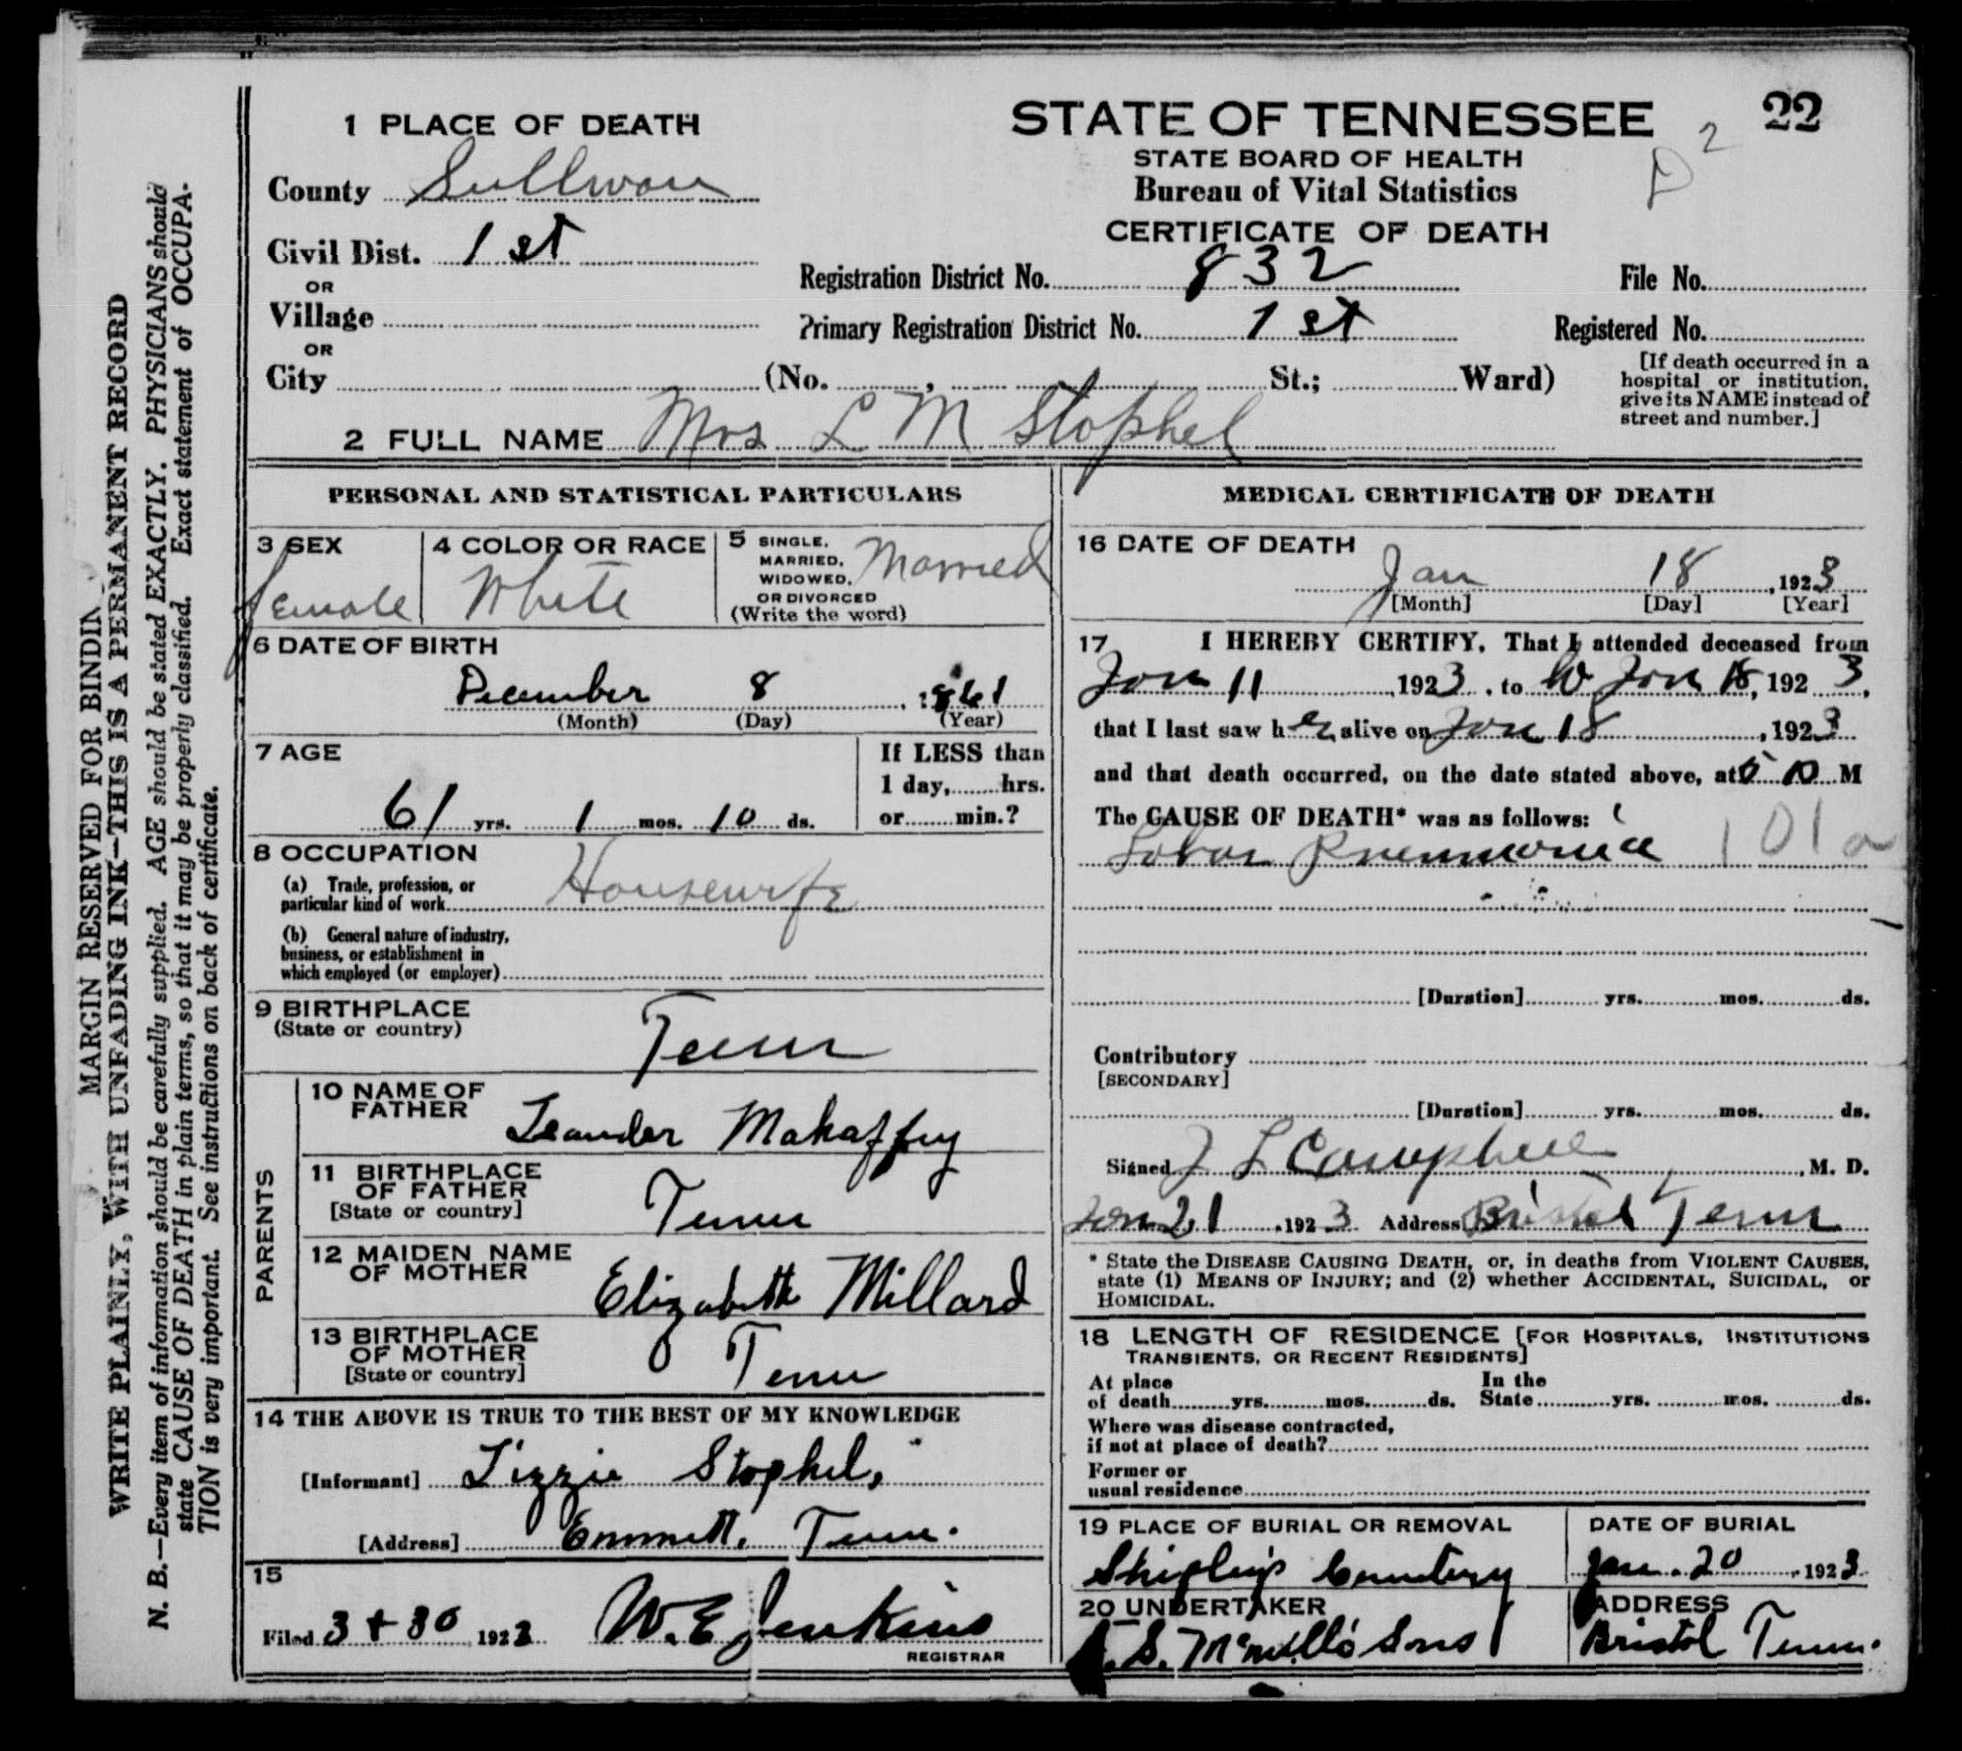 22
1 PLACE OF DEATH
County Sullivan
Civil Dist. 1 st
OR
Village
OR
City (No. , St.; Ward)
STATE OF TENNESSEE
STATE BOARD OF HEALTH
Bureau of Vital Statistics
CERTIFICATE OF DEATH
Registration District No. 832
File No.
Primary Registration District No. 1 st
Registered No.
[If death occurred in a
hospital or institution,
give its NAME instead of
street and number.]
2 FULL NAME Mrs L M Stophel
PERSONAL AND STATISTICAL PARTICULARS
3 SEX
female
4 COLOR OR RACE
White
5 SINGLE,
MARRIED,
WIDOWED,
OR DIVORCED
(Write the word)
Married
6 DATE OF BIRTH
December 8, 1861
(Month) (Day) (Year)
7 AGE
61 yrs. 1 mos. 10 ds.
If LESS than
1 day, hrs.
or min.?
8 OCCUPATION
(a) Trade, profession, or
particular kind of work Housewife
(b) General nature of industry,
business, or establishment in
which employed (or employer)
9 BIRTHPLACE
(State or country)
Tenn
PARENTS
10 NAME OF
FATHER Leander Mahaffey
11 BIRTHPLACE
OF FATHER
[State or country] Tenn
12 MAIDEN NAME
OF MOTHER
Elizabeth Millard
13 BIRTHPLACE
OF MOTHER
[State or country] Tenn
14 THE ABOVE IS TRUE TO THE BEST OF MY KNOWLEDGE
[Informant] Lizzie Stophel,
[Address] Emmett, Tenn.
15
Filed 3 + 30 1923 W. E. Jenkins
REGISTRAR
MEDICAL CERTIFICATE OF DEATH
16 DATE OF DEATH
Jan 18, 1923
[Month] [Day] [Year]
17 I HEREBY CERTIFY, That I attended deceased from
Jan 11, 1923, to Jan 18, 1923,
that I last saw her alive on Jan 18, 1923
and that death occurred, on the date stated above, at M
The CAUSE OF DEATH* was as follows:
Lobar Pneumonia 101a
[Duration] yrs. mos. ds.
Contributory
[SECONDARY]
[Duration] yrs. mos. ds.
Signed J L Campbell, M. D.
Jan 21, 1923 Address Bristol Tenn
* State the DISEASE CAUSING DEATH, or, in deaths from VIOLENT CAUSES,
state (1) MEANS OF INJURY; and (2) whether ACCIDENTAL, SUICIDAL, or
HOMICIDAL.
18 LENGTH OF RESIDENCE [FOR HOSPITALS, INSTITUTIONS
TRANSIENTS, OR RECENT RESIDENTS]
At place
of death yrs. mos. ds.
In the
State yrs. mos. ds.
Where was disease contracted,
if not at place of death?
Former or
usual residence
19 PLACE OF BURIAL OR REMOVAL
Shipley's Cemetery
DATE OF BURIAL
Jan. 20, 1923
20 UNDERTAKER
S. Sons
ADDRESS
Bristol Tenn.
MARGIN RESERVED FOR BINDIN
WRITE PLAINLY, WITH UNFADING INK—THIS IS A PERMANENT RECORD
N. B.—Every item of information should be carefully supplied. AGE should be stated EXACTLY. PHYSICIANS should
state CAUSE OF DEATH in plain terms, so that it may be properly classified. Exact statement of OCCUPA-
TION is very important. See instructions on back of certificate.